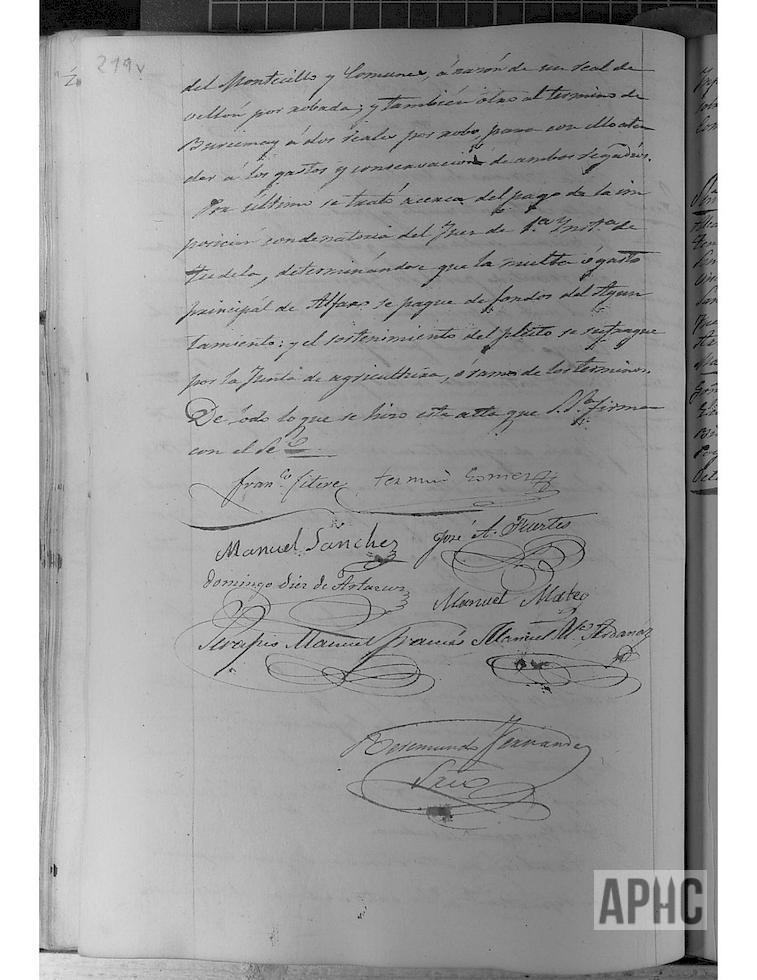 219v
del Monticillo y Comunes, á razón de un real de
vellón por robada; y también otro al termino de
á dos reales por robo para con ello aten
der á los gastos y conservación de ambos regadíos.
Por último se trató acerca del pago de la im
posición condenatoria del Juez de 1.ª Yns.ª de
Tudela, determinándose que la multa ó gasto
principál de Alfaro se pague de fondos del Ayun
tamiento; y el sostenimiento del pleito se sufrague
por la Junta de agricultura, ó ramo de los terminos.
De todo lo que se hizo esta acta que S. Sª firma
con el Se
Fran.co Litere Fermin Gomez
Manuel Sánchez José A. Fuertes
Domingo Diez de Manuel Mateo
Serapio Manuel Francés Manuel Mª Ardanaz
Rosimundo Fernandez
Srio
APHC